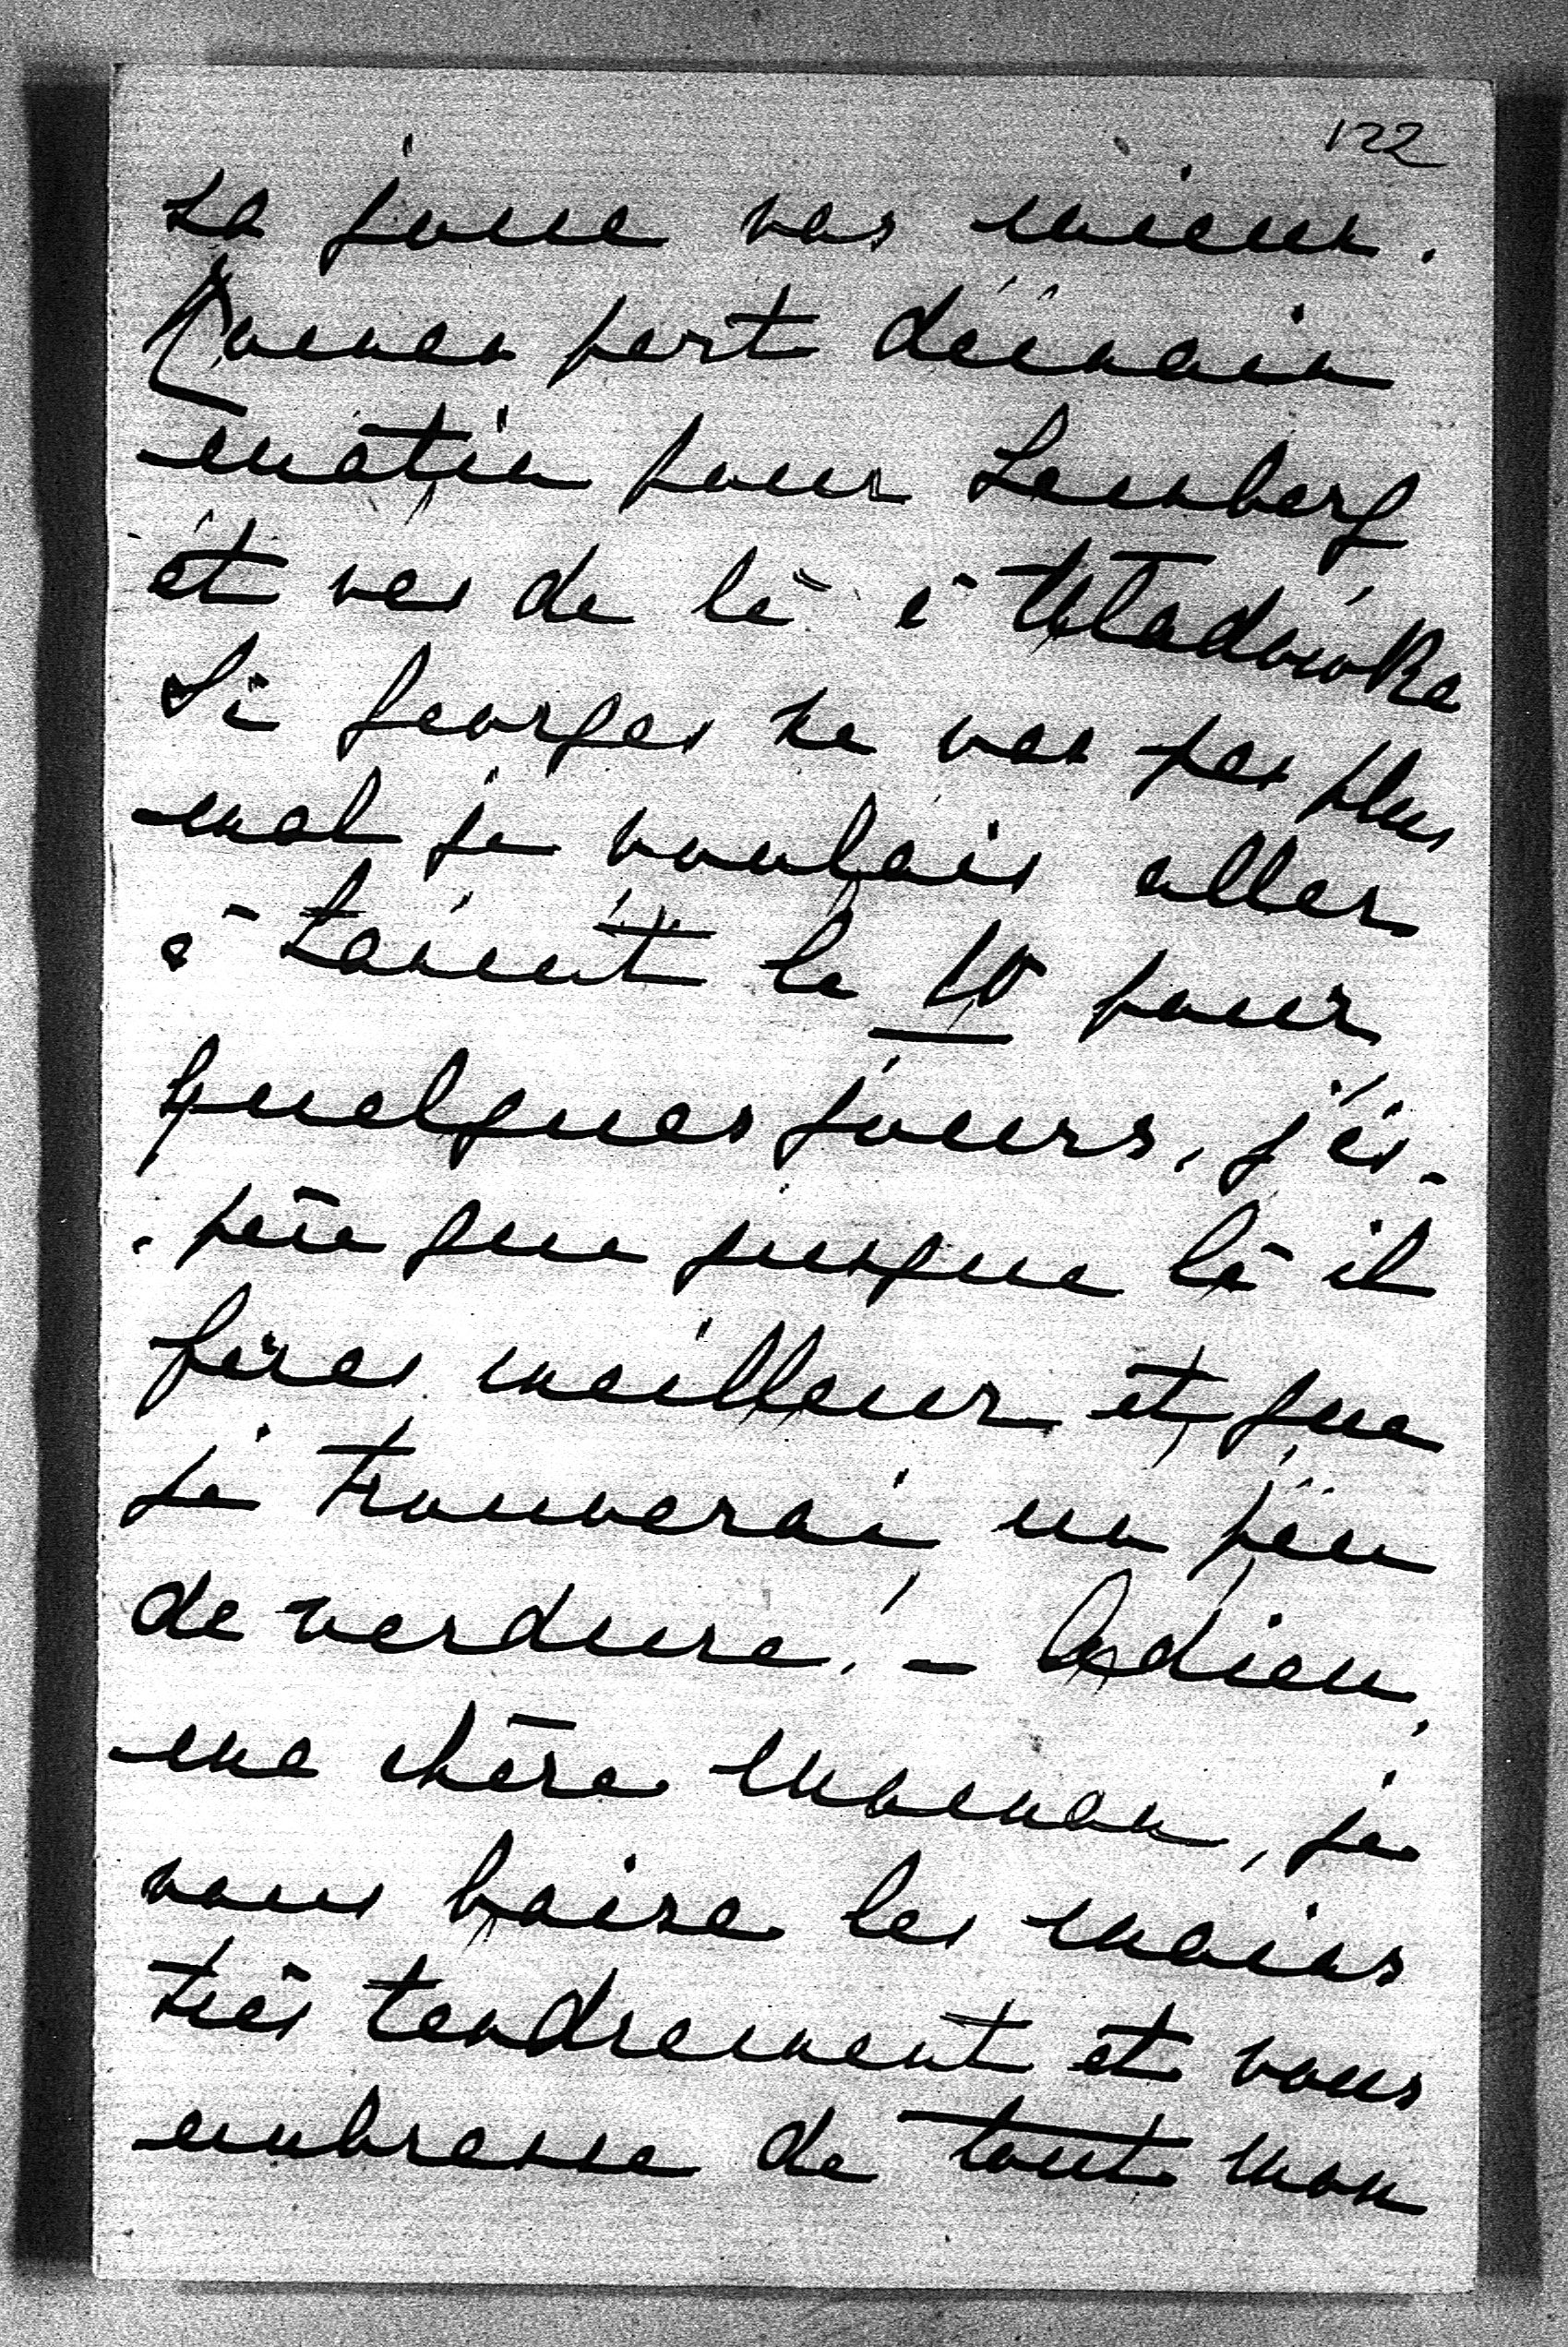 122
sa joue vas mieux.
part demain
matin pour Lemberg
et vas de là à Uladowka
Si Georges ne vas pas plus
mal je voulais aller
à Lancut le 10 pour
quelques jours, j'es-
-père que jusque là il
feras meilleur et que
je trouverai un peu
de verdure. - Adieu,
ma chère Maman, je
vous baise les mains
très tendrement et vous
embrasse de tout mon